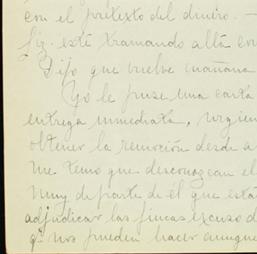 con el pretexto del dinero. —
fiz. esté tramando allá con
Dijo que vuelve mañana
Yo le puse una carta
entrega inmediata, urgien
obtener la remoción desde a
me temo que desconozcan el
muy de parte de él que está
adjudicar las fincas, excuso d
q. nos pueden hacer aunque